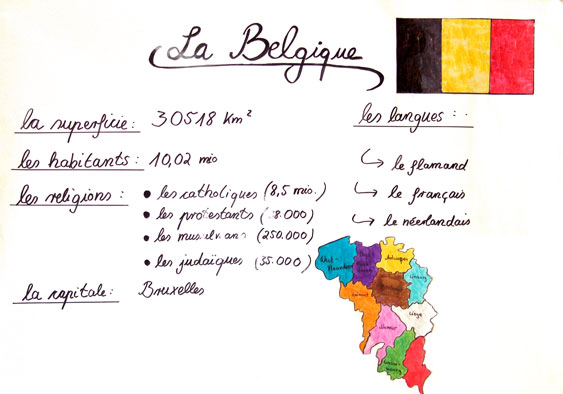 La Belgique
la superficie: 30518 Km²
les habitants: 10,02 mio
les religions: • les catholiques (8,5 mio.)
• les protestants
• les musulmans (250.000)
• les judaïques (35.000)
la capitale: Bruxelles
les langues:
↪ le flamand
↪ le français
↪ le néerlandais
Antwerpen
Hainaut
Liège
Namur